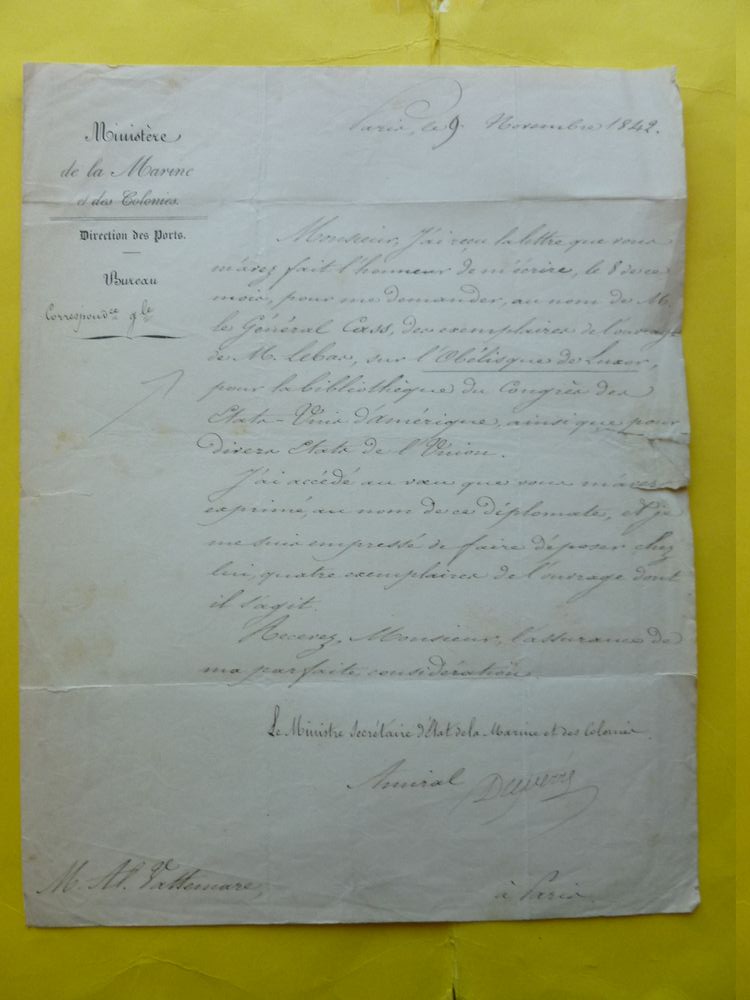 Ministère
de la Marine
et des Colonies.
Direction des Ports.
Bureau
Correspondce gle
Paris, le 9 Novembre 1842.
Monsieur, J'ai reçu la lettre que vous
m'avez fait l'honneur de m'écrire, le 8 de ce
mois, pour me demander, au nom de M.
le Général Cass, des exemplaires de l'ouvrage
de M. Lebas, sur l'Obélisque de Luxor,
pour la bibliothèque du Congrès des
Etats-Unis d'amérique, ainsi que pour
divers Etats de l'Union.
J'ai accédé au vœu que vous m'avez
exprimé, au nom de ce diplomate, et je
me suis empressé de faire déposer chez
lui, quatre exemplaires de l'ouvrage dont
il s'agit.
Recevez, Monsieur, l'assurance de
ma parfaite considération.
Le Ministre Secrétaire d'Etat de la Marine et des Colonies.
Amiral Duperré
M. Al. Vattemare,
à Paris.